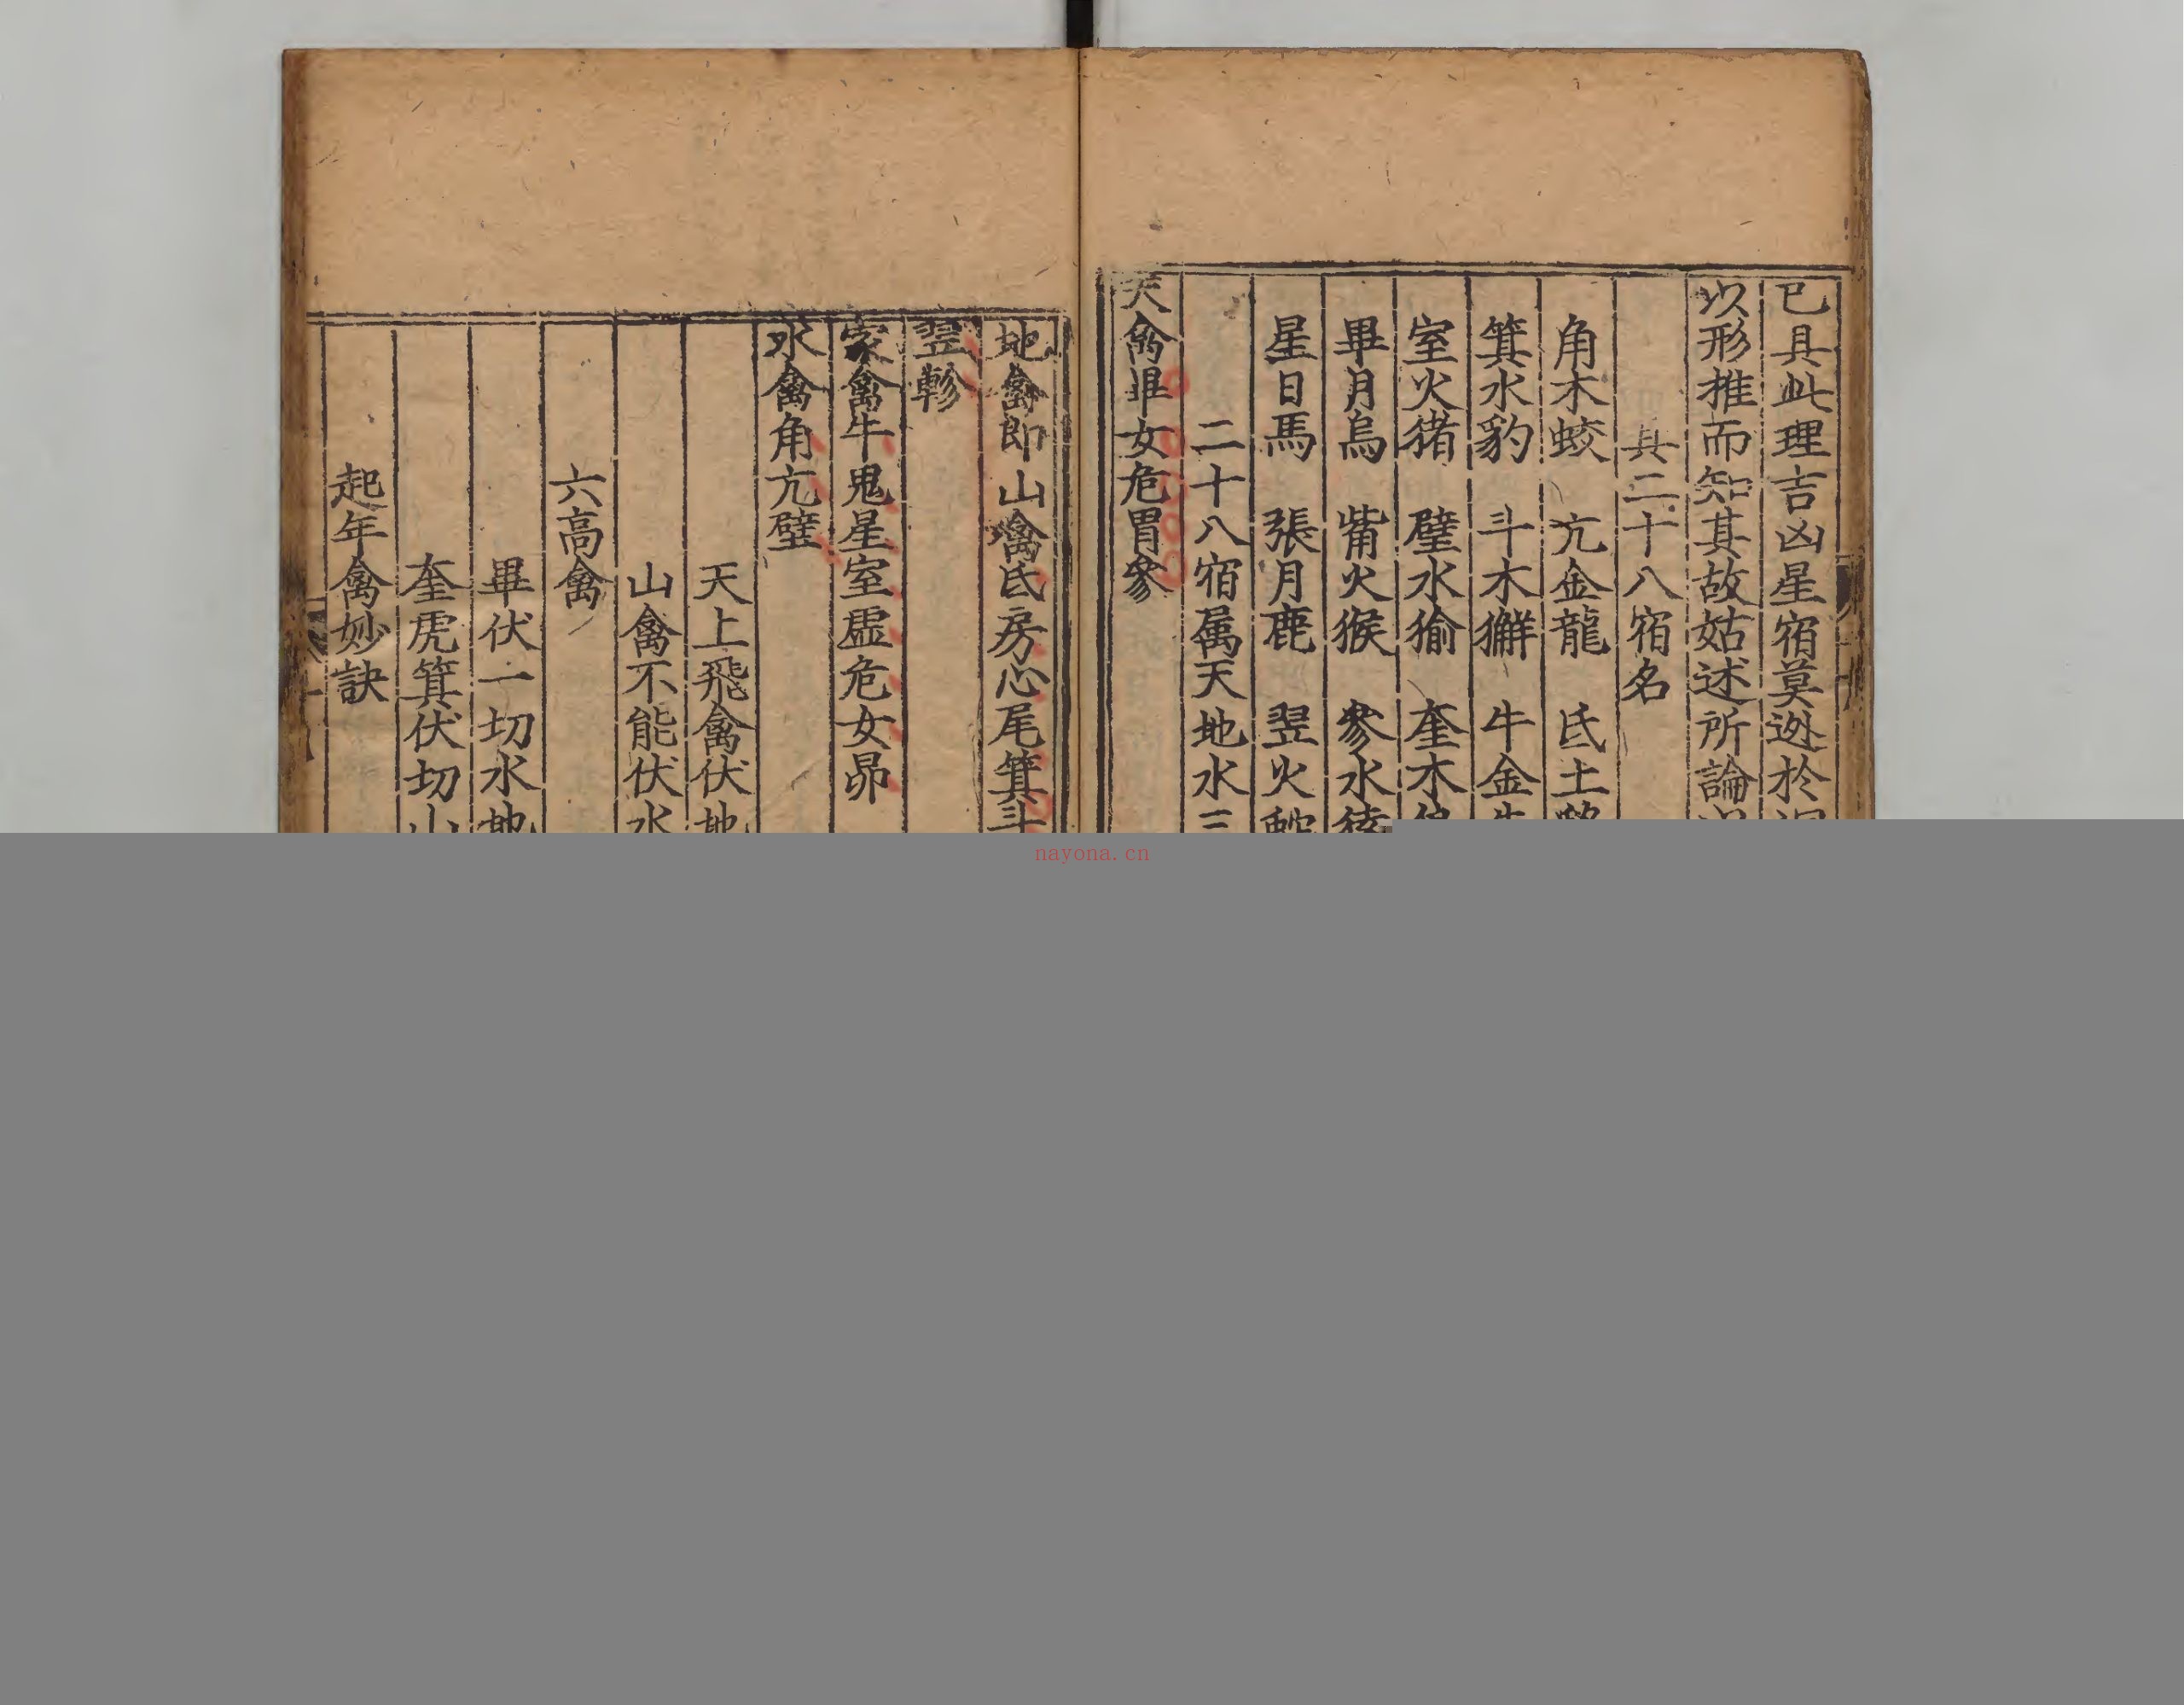 已具此理吉凶星宿莫逊於
以形推而知其故姑述所論
具二十八宿名
角木蛟　亢金龍　氐土
箕水豹　斗木獬　牛金牛
室火猪　壁水㺄　奎木狼
畢月烏　觜火猴　參水猿
星日馬　張月鹿　翌火蛇
二十八宿属天地水三
天禽畢女危胃參
地禽即山禽氐房心尾箕斗
翌軫
家禽牛鬼星室虛危女昴
水禽角亢壁
天上飛禽伏地
山禽不能伏水
六高禽
畢伏一切水地
奎虎箕伏切山
起年禽妙訣
nayona.cn